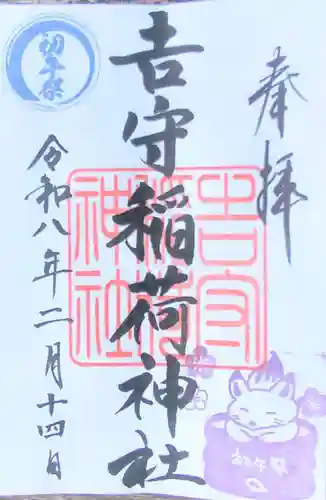 奉拝
吉守稲荷神社
吉守稲荷神社
初午祭
令和八年二月十四日
初午祭